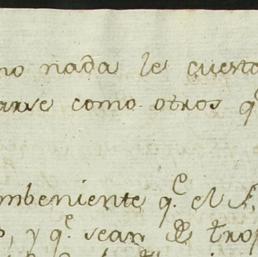 no nada le cuesta
arse como otros qᵉ
mbeniente qᵉ el S.
, y qᵉ sean de trop